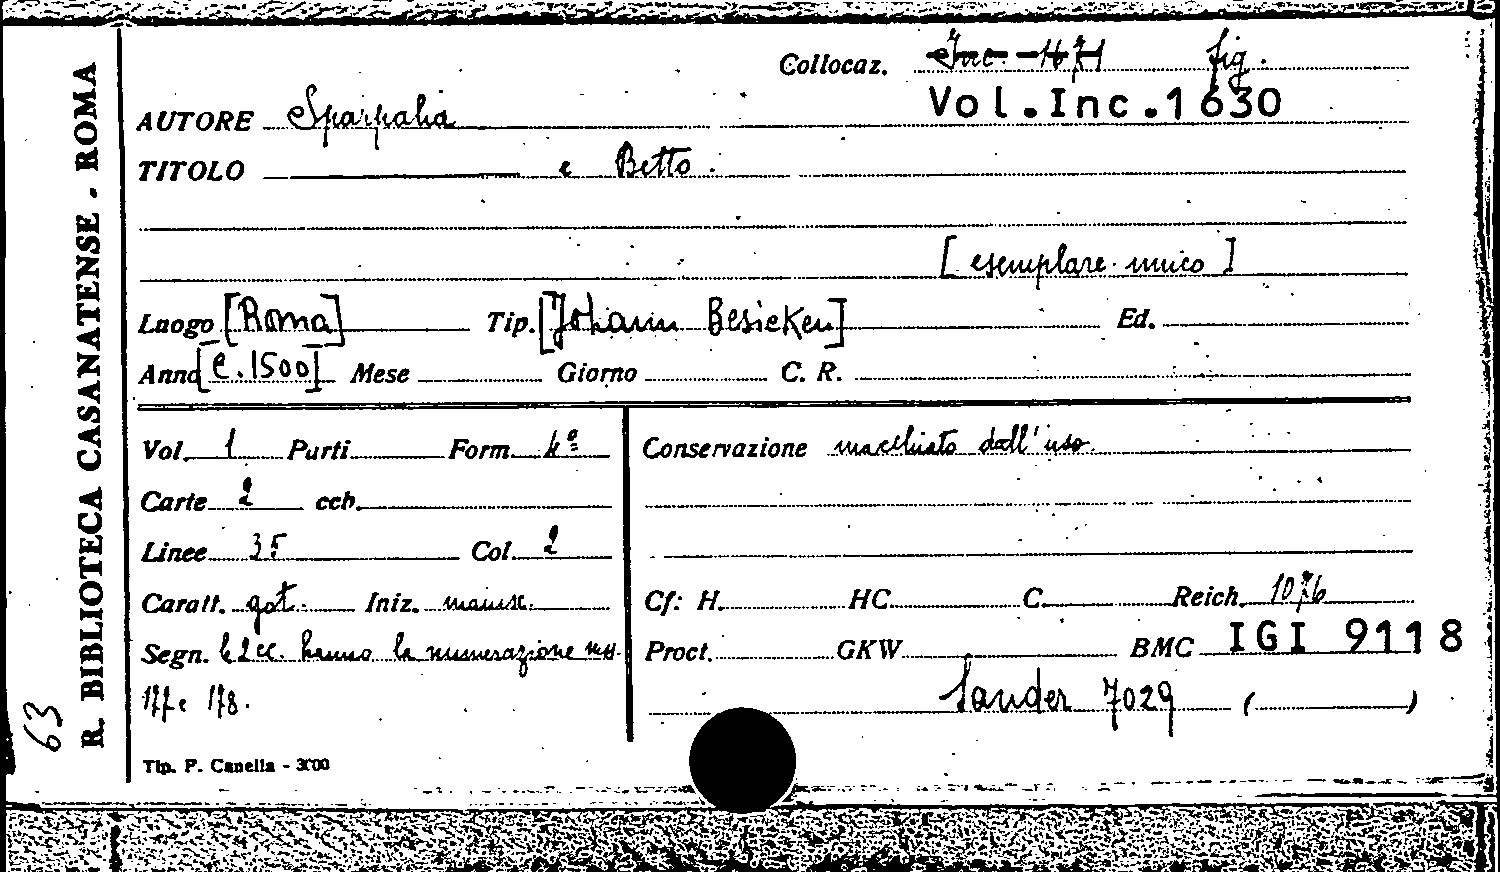 R. BIBLIOTECA CASANATENSE - ROMA
63
Collocaz. fig.
Vol.Inc.1630
AUTORE Sparpalia
TITOLO e Betto.
[esemplare unico]
Luogo [Roma] Tip. [Johann Besicken] Ed.
Anno [c.1500] Mese Giorno C. R.
Vol. 1 Parti Form. 4º
Carte 2 ccb.
Linee 35 Col. 2
Caratt. got. Iniz. maiusc.
Segn. le 2 cc. hanno la numerazione ms.
177 e 178.
Conservazione macchiato dall'uso.
Cf: H. HC. C. Reich. 1076
Proct. GKW BMC IGI 9118
Sander 7029 ( )
Tip. P. Canella - 3000